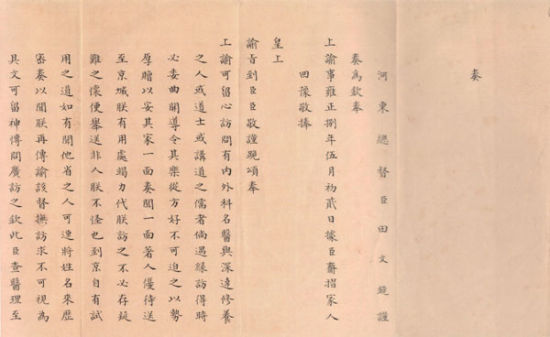 奏
河東總督臣田文鏡謹
奏為欽奉
上諭事雍正捌年伍月初貳日據臣齎摺家人
回豫敬捧
皇上
諭旨到臣臣敬謹跪頌奉
上諭可留心訪問有內外科名醫與深達修養
之人或道士或講道之儒者倘遇緣訪得時
必委曲開導令其樂從方好不可迫之以勢
厚贈以安其家一面奏聞一面著人優待送
至京城朕有用處竭力代朕訪之不必存疑
難之懷便舉送非人朕不怪也到京自有試
用之道如有聞他省之人可速將姓名來歷
密奏以聞朕再傳諭該督撫訪求不可視為
具文可留神博問廣訪之欽此臣查醫理至